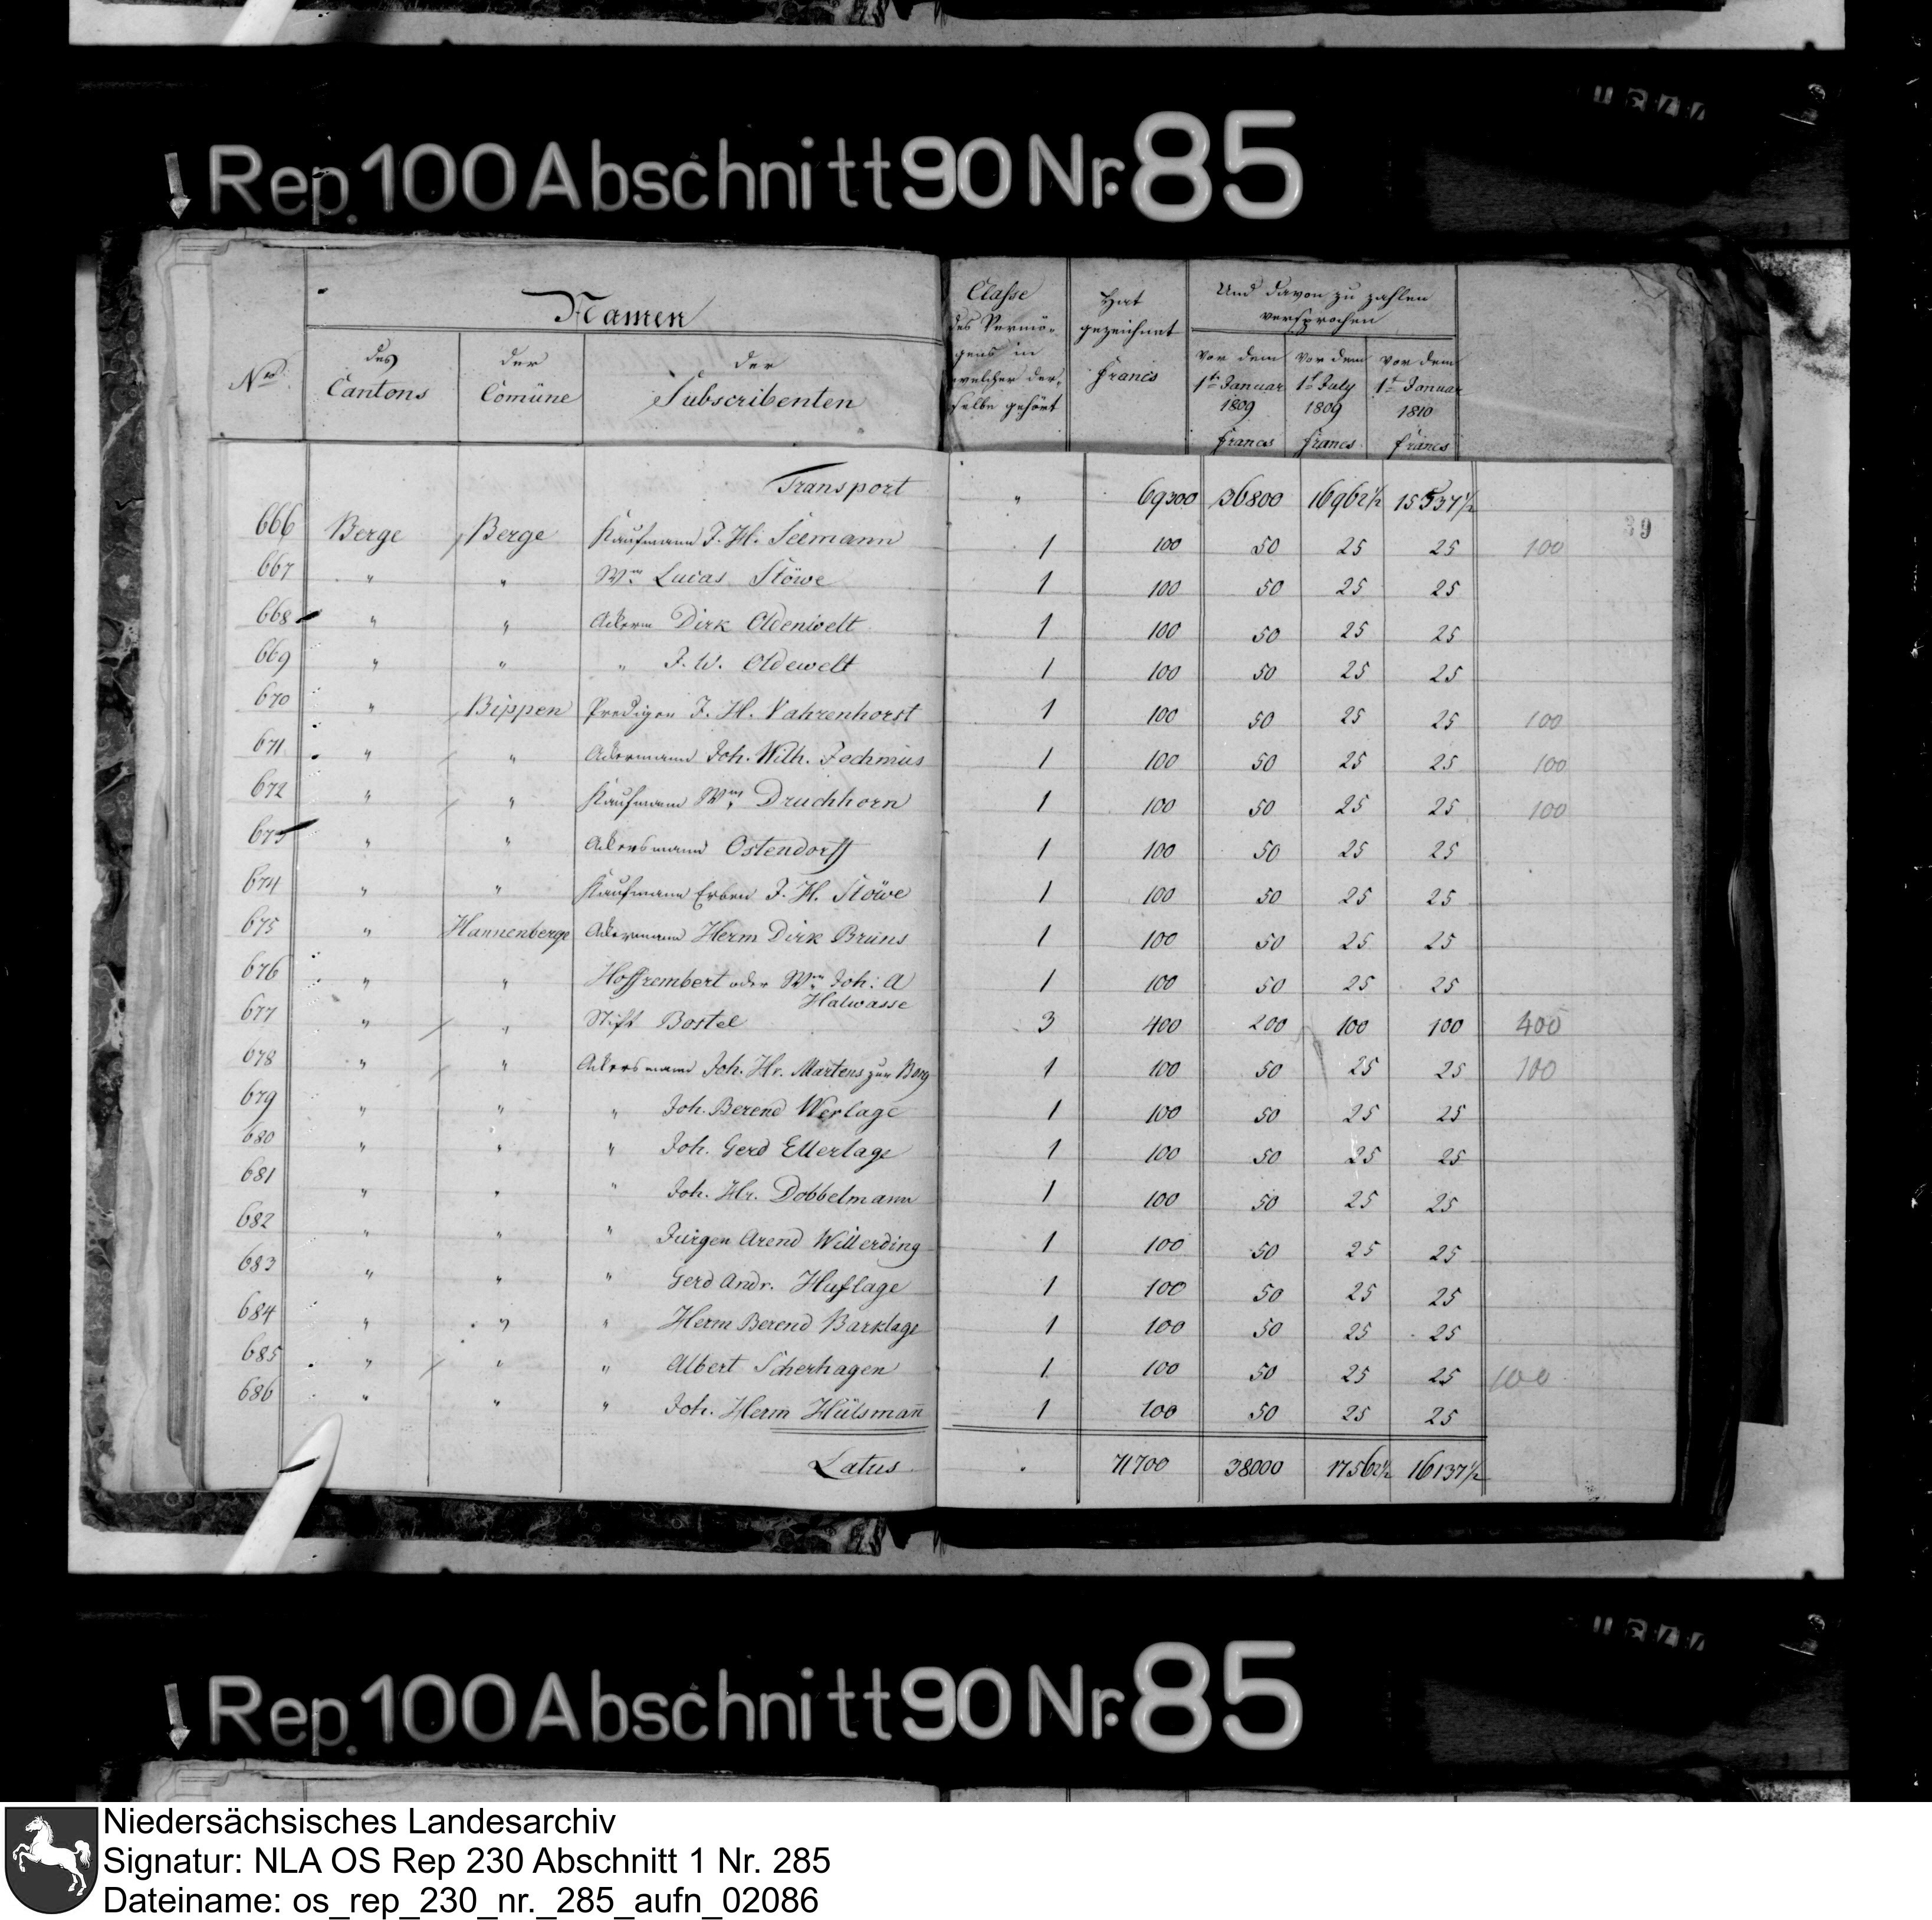 Rep. 100 Abschnitt 90 Nr. 85
Namen
No.
des Cantons
der Comüne
der Subscribenten
Classe des Vermögens in welcher derselbe gehört
Hat gezeichnet Francs
Und davon zu zahlen versprochen
vor dem 1t Januar 1809 Francs
vor dem 1t July 1809 Francs
vor dem 1t Januar 1810 Francs
39
Transport " 69300 36800 16962½ 15537½
666 Berge Berge Kaufmann J. H. Seemann 1 100 50 25 25 100
667 " " Ww. Lucas Stöwe 1 100 50 25 25
668 " " Ackerm Dirk Oldenwelt 1 100 50 25 25
669 " " " J. W. Oldewelt 1 100 50 25 25
670 " Bippen Prediger J. H. Vahrenhorst 1 100 50 25 25 100
671 " " Ackermann Joh. Wilh. Jechmus 1 100 50 25 25 100
672 " " Kaufmann Wm Druchhorn 1 100 50 25 25 100
673 " " Ackersmann Ostendorff 1 100 50 25 25
674 " " Kaufmann Erben J. H. Stöwe 1 100 50 25 25
675 " Hannenberge Ackermann Herm Dirk Bruns 1 100 50 25 25
676 " " Hoffrembert oder Ww. Joh: A Halwasse 1 100 50 25 25
677 " " Stift Bostel 3 400 200 100 100 400
678 " " Ackersmann Joh. Hr. Martens zur Berg 1 100 50 25 25 100
679 " " " Joh. Berend Werlage 1 100 50 25 25
680 " " " Joh. Gerd Ellerlage 1 100 50 25 25
681 " " " Joh. Hr. Dobbelmann 1 100 50 25 25
682 " " " Jürgen Arend Willerding 1 100 50 25 25
683 " " " Gerd Andr. Huflage 1 100 50 25 25
684 " " " Herm Berend Barklage 1 100 50 25 25
685 " " " Albert Scherhagen 1 100 50 25 25 100
686 " " " Joh. Herm Hülsmañ 1 100 50 25 25
Latus 71700 38000 17562½ 16137½
Rep. 100 Abschnitt 90 Nr. 85
Niedersächsisches Landesarchiv
Signatur: NLA OS Rep 230 Abschnitt 1 Nr. 285
Dateiname: os_rep_230_nr._285_aufn_02086